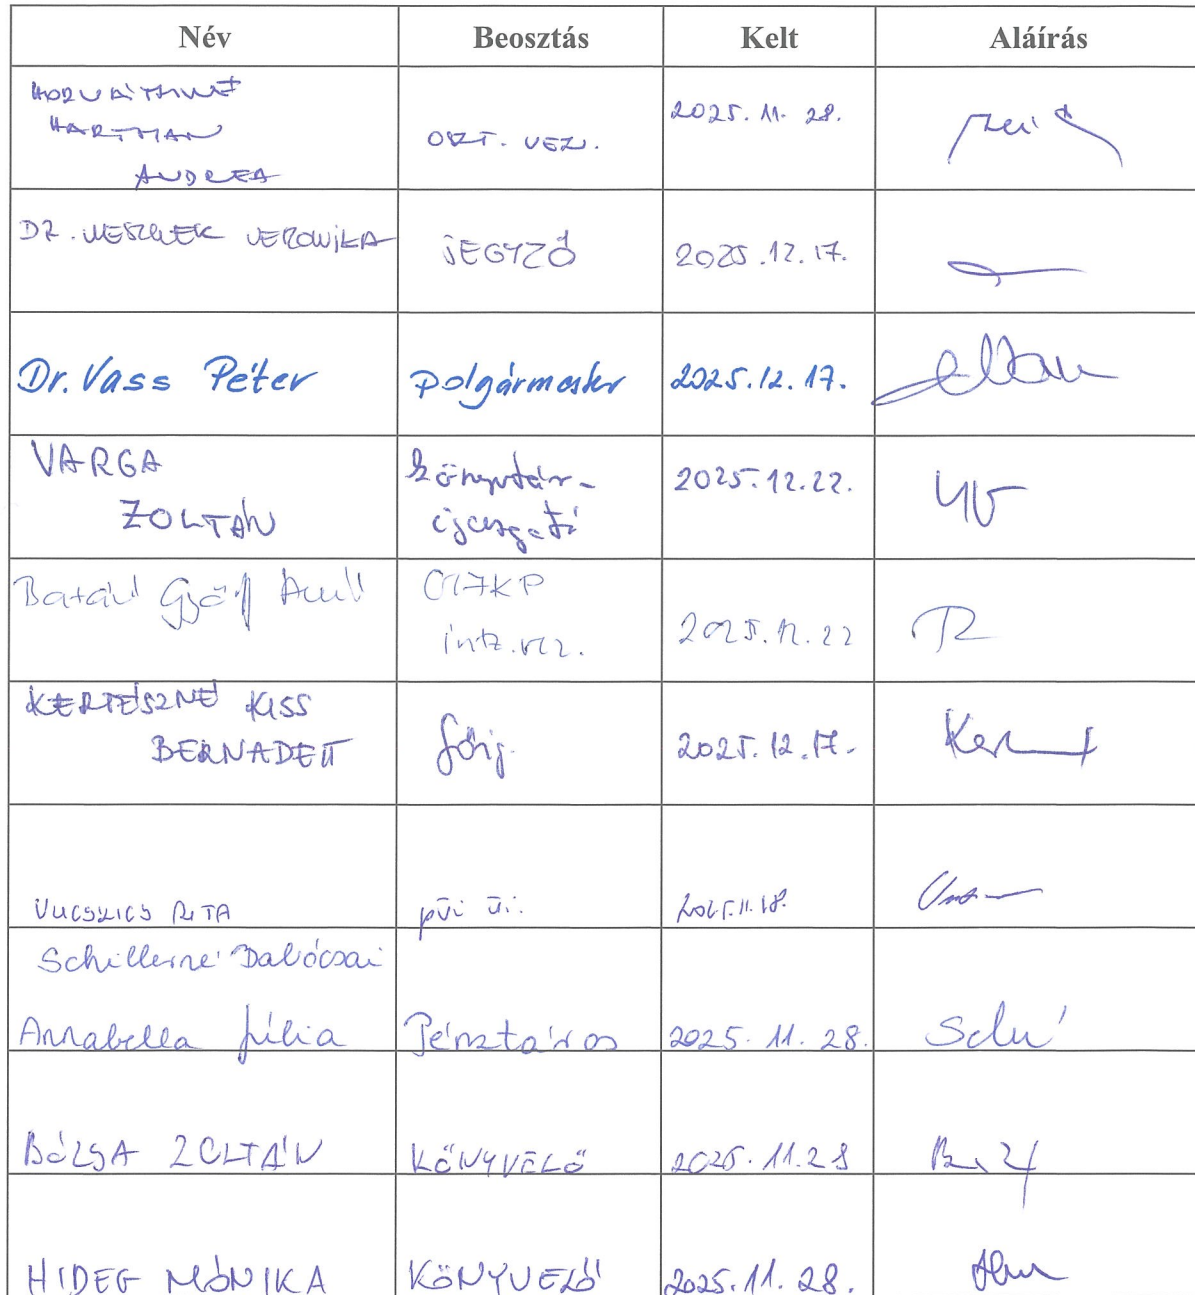 Név Beosztás Kelt Aláírás
HORVÁTHNÉ
HARTMAN
ANDREA
OSZT. VEZ.
2025. 11. 28.
DR. VERONIKA
JEGYZŐ
2025.12.17.
Dr. Vass Péter
polgármester
2025.12.17.
VARGA
ZOLTÁN
könyvtár-
igazgató
2025.12.22.
OIFKP
int. vez.
2025.12.22
KERTÉSZNÉ KISS
BERNADETT
főig.
2025.12.17.
VUCSKICS RITA
pü üi.
2025.11.28.
Schillerné Dabócsai
Annabella Júlia
Pénztáros
2025. 11. 28.
BÓLSA ZOLTÁN
KÖNYVELŐ
2025.11.28
HIDEG MÓNIKA
KÖNYVELŐ
2025.11.28.